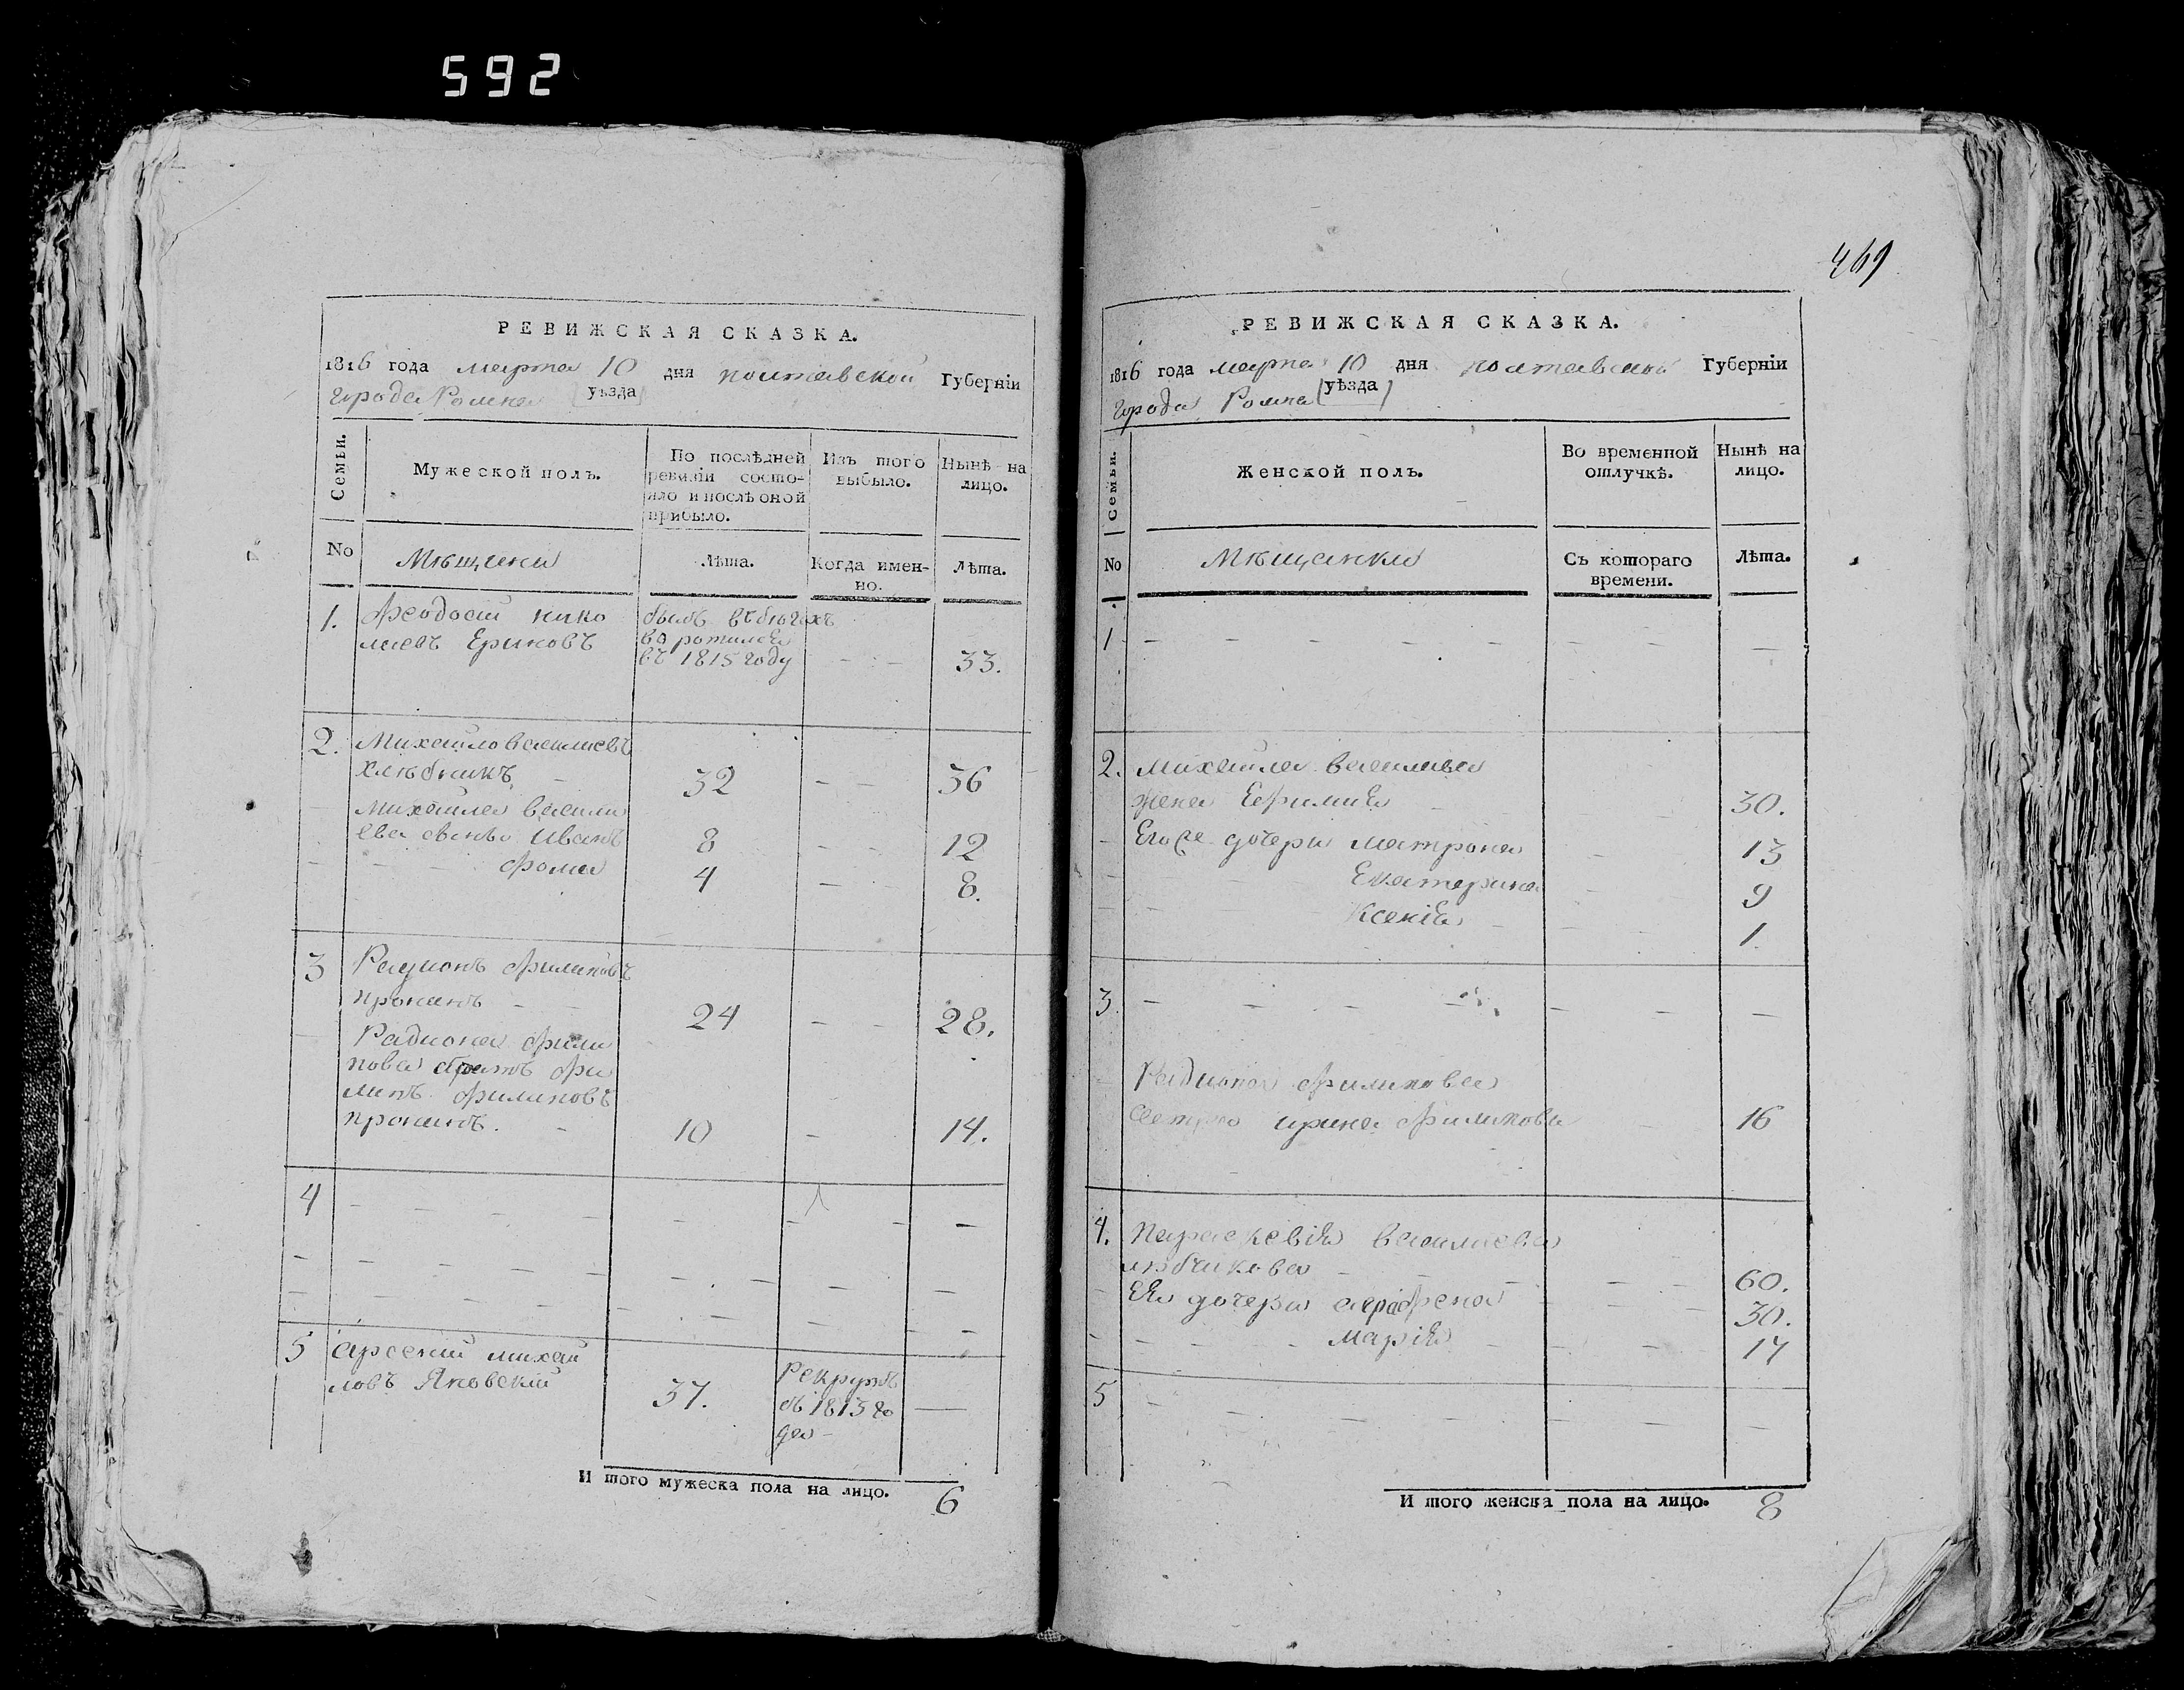 592
469
РЕВИЖСКАЯ СКАЗКА.
1816 года марта 10 дня полтавской Губерніи
города Ромна (уѣзда)
Семьи.
Мужеской полъ.
По послѣдней ревизіи состояло и послѣ оной прибыло.
Изъ того выбыло.
Нынѣ на лицо.
No
Мѣщане
Лѣта.
Когда именно.
Лѣта.
1. Феодосій нико
лаевъ Ериковъ
былъ въ бѣгахъ
воротился
въ 1815 году
33.
2. Михайло василиевъ
хлѣбникъ 32 36
Михайла васили
ева сынъ Иванъ 8 12
Фома 4 8.
3 Радионъ Филиповъ
пронинъ 24 28.
Радиона Фили
пова братъ Фи
липъ Филиповъ
пронинъ. 10 14.
4
5 Арсений михай
ловъ Яновский 37.
Рекрутъ
въ 1813 го
да
И того мужеска пола на лицо. 6
РЕВИЖСКАЯ СКАЗКА.
1816 года марта 10 дня полтавской Губерніи
города Ромна (уѣзда)
Семьи.
Женской полъ.
Во временной отлучкѣ.
Нынѣ на лицо.
No
Мѣщанки
Съ котораго времени.
Лѣта.
1
2. Михайла василиева
жена Ефимия 30.
Его же дочери матрона 13
Екатерина 9
Ксенія 1.
3
Радиона Филипова
сестра ирина Филипова 16
4. Параскевія василиева
60.
Ея дочери 30.
Марія 14
5
И того женска пола на лицо. 8